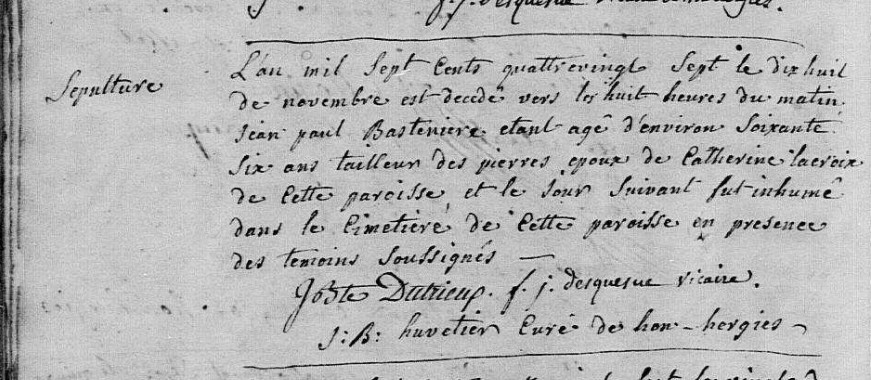 f. j. desquesne
Sepulture
L'an mil sept cents quattrevingt sept le dix huit
de novembre est decedé vers les huit heures du matin
jean paul Bastenierx etant agé d'environ soixante
six ans tailleur des pierres epoux de Catherine lacroix
de cette paroisse et le jour suivant fut inhumé
dans le cimetiere de cette paroisse en presence
des temoins soussignés —
JBte Dutrieux. f. j. desquesne vicaire.
J: B: huvetier Curé de hon-hergies